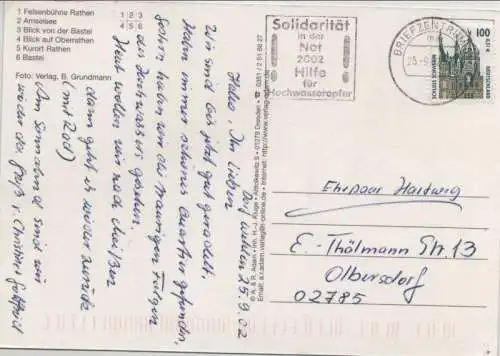 1 Felsenbühne Rathen
2 Amselsee
3 Blick von der Bastei
4 Blick auf Oberrathen
5 Kurort Rathen
6 Bastei
1 2 3
4 5 6
Foto: Verlag, B. Grundmann
Solidarität
in der
Not
2002
Hilfe
für
Hochwasseropfer
BRIEFZENTRUM
25.-9.
100
0,51 €
DEUTSCHLAND
Dorf Wehlen 25.9.02
Hallo, Ihr Lieben
Wir sind bis jetzt gut geradelt.
Haben immer schönes Quartier gefunden.
Gestern haben wir die traurigen Folgen
des Hochwassers gesehen.
Heut wollen wir nach Meißen
dann geht es wieder zurück
(mit Rad)
Am Sonnabend sind wir
wieder da. Gruß v. Christine Gottfried
© A. & R. Adam Verlag Inh. H.-J. Kluge • 01279 Dresden • ☎ 0351 / 2 51 66 27
Ehepaar Hartwig
E.-Thälmann Str. 13
Olbersdorf
02785